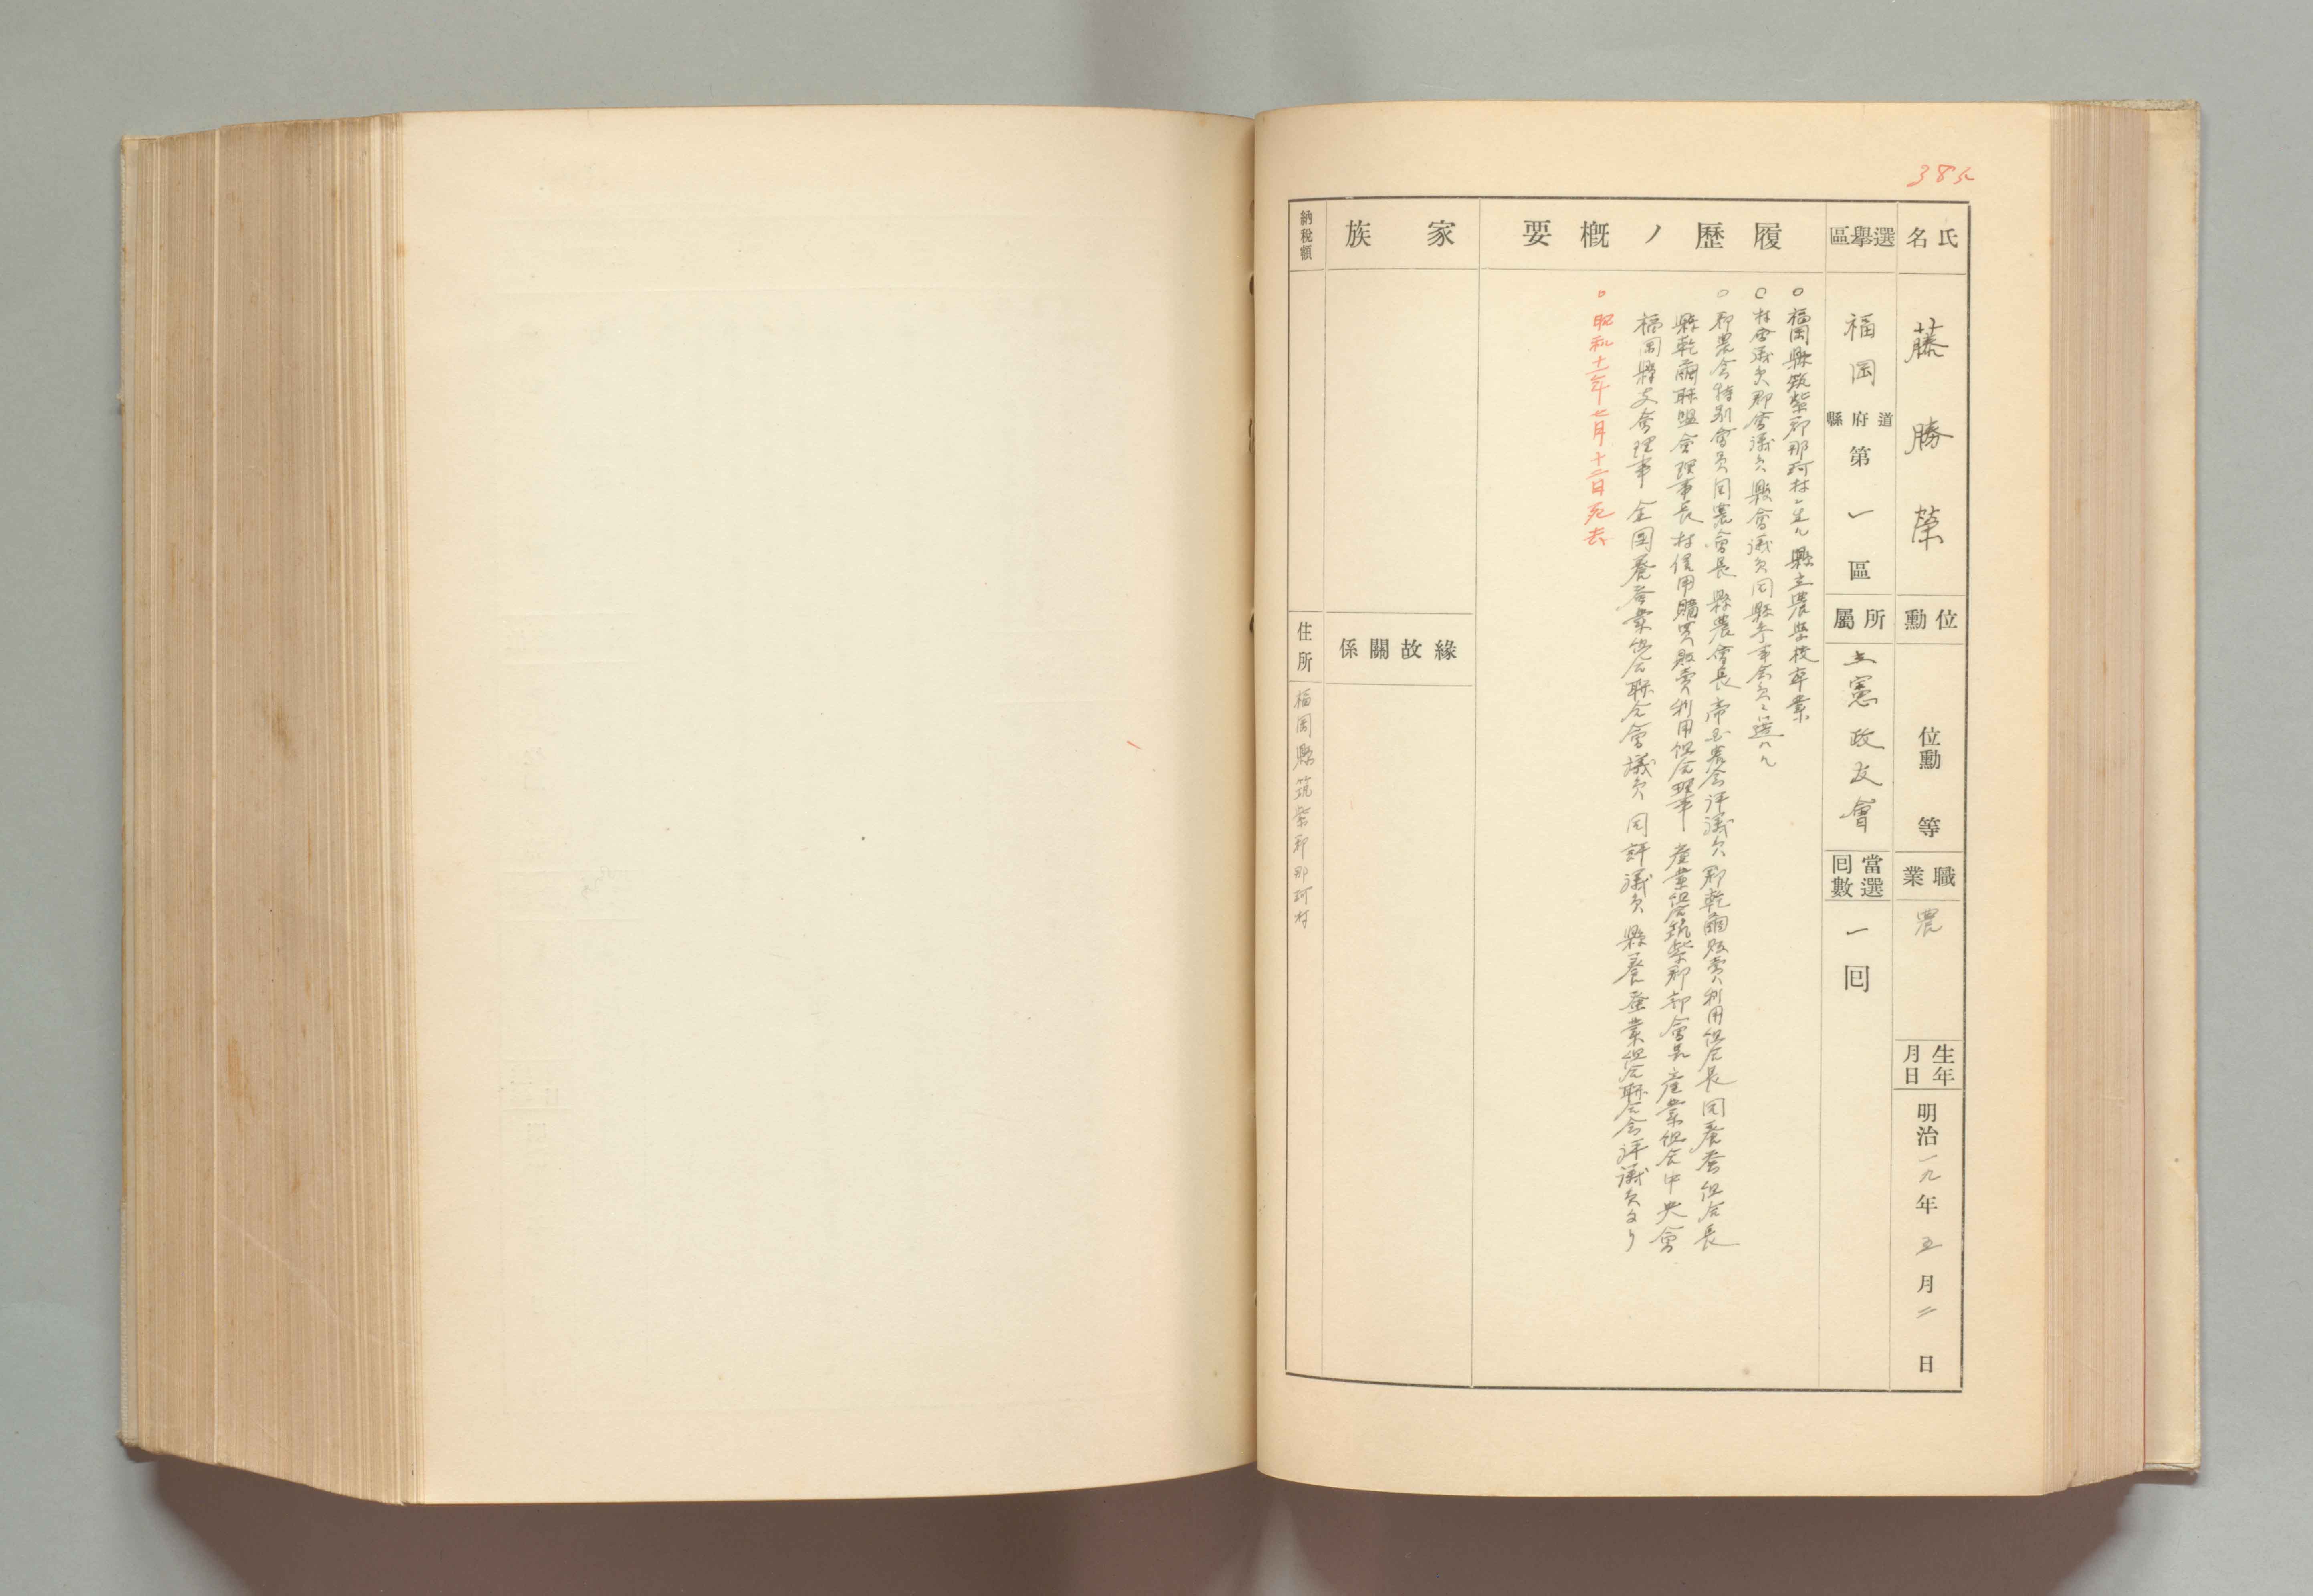 383
氏名
藤勝榮
位勳
位勳 等
職業
農
生年月日
明治一九年五月二日
選擧區
福岡縣府道第一區
所屬
立憲政友會
當選囘數
一囘
履歷ノ概要
○福岡縣筑紫郡那珂村ニ生ル 縣立農學校卒業
○村會議員郡會議員縣會議員同縣參事会員ニ選ハル
○郡農会特別會員同農會長縣農會長帝国農会評議員郡乾繭販賣利用組合長同養蚕組合長
縣乾繭聯盟會理事長村信用購買販賣利用組合理事 產業組合筑紫郡部會長產業組合中央會
福岡縣支會理事 全国養蚕業組合聯合會議員同評議員縣養蚕業組合聯合会評議員タリ
○昭和十一年七月十二日死去
家族
緣故關係
納稅額
住所
福岡縣筑紫郡那珂村